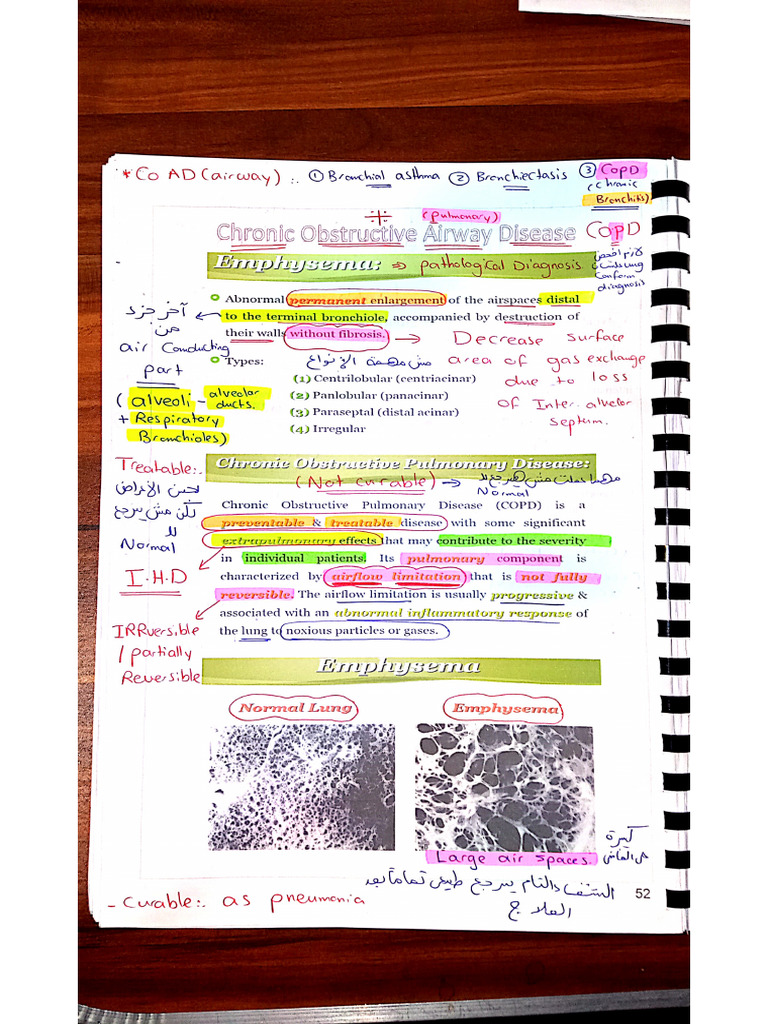 * Co AD (airway) :. ① Bronchial asthma ② Bronchiectasis ③ COPD
(chronic
Bronchitis)
(pulmonary)
Chronic Obstructive Airway Disease COPD
Emphysema: ⇒ pathological Diagnosis.
لازم افحص
diagnosis
Abnormal permanent enlargement of the airspaces distal
to the terminal bronchiole, accompanied by destruction of
their walls without fibrosis. → Decrease surface
area of gas exchange
due to loss
of Inter. alveolar
septum.
آخر جزء
من
air Conducting
part
(alveoli - alveolar
ducts.
+ Respiratory
Bronchioles)
Types: مش مهمة الأنواع
(1) Centrilobular (centriacinar)
(2) Panlobular (panacinar)
(3) Paraseptal (distal acinar)
(4) Irregular
Chronic Obstructive Pulmonary Disease:
(Not curable) → مهما عملت مش هيرجع لـ
Normal
Treatable:.
تحسن الأعراض
لكن مش يرجع
لل
Normal
I.H.D
IRRversible
/ partially
Reversible
Chronic Obstructive Pulmonary Disease (COPD) is a
preventable & treatable disease with some significant
extrapulmonary effects that may contribute to the severity
in individual patients. Its pulmonary component is
characterized by airflow limitation that is not fully
reversible. The airflow limitation is usually progressive &
associated with an abnormal inflammatory response of
the lung to noxious particles or gases.
Emphysema
Normal Lung Emphysema
Large air spaces.
كبيرة
الشفاء التام يرجع طبيعي تماماً بعد
العلاج
- Curable:. as pneumonia
52